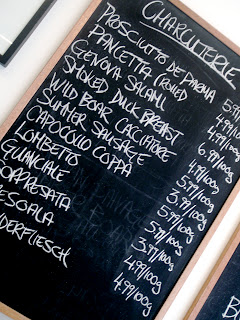 CHARCUTERIE
PROSCIUTTO DE PARMA 5.9
PANCETTA (ROLLED) 4.99/
GENOVA SALAMI 4.99/10
SMOKED DUCK BREAST 6.99/100
WILD BOAR CACCIATORE 4.99/100g
SUMMER SAUSAGE 5.99/100g
CAPOCOLLO COPPA 3.99/100g
LOMBETTO 5.99/100g
GUANCIALE 5.99/100g
OPPRESATA 3.99/100g
ESOALA 4.99/100g
DERFLIESCH 4.99/100g